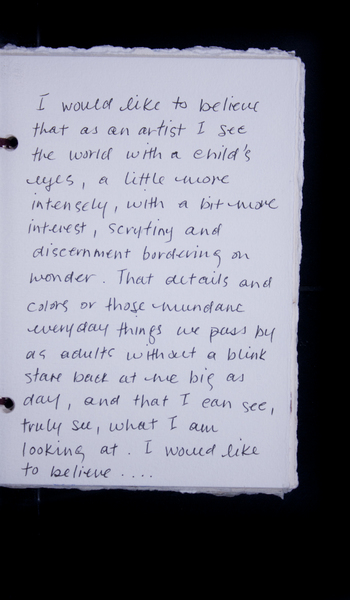 I would like to believe
that as an artist I see
the world with a child's
eyes, a little more
intensely, with a bit more
interest, scrutiny and
discernment bordering on
wonder. That details and
colors or those mundane
everyday things we pass by
as adults without a blink
stare back at me big as
day, and that I can see,
truly see, what I am
looking at. I would like
to believe ....